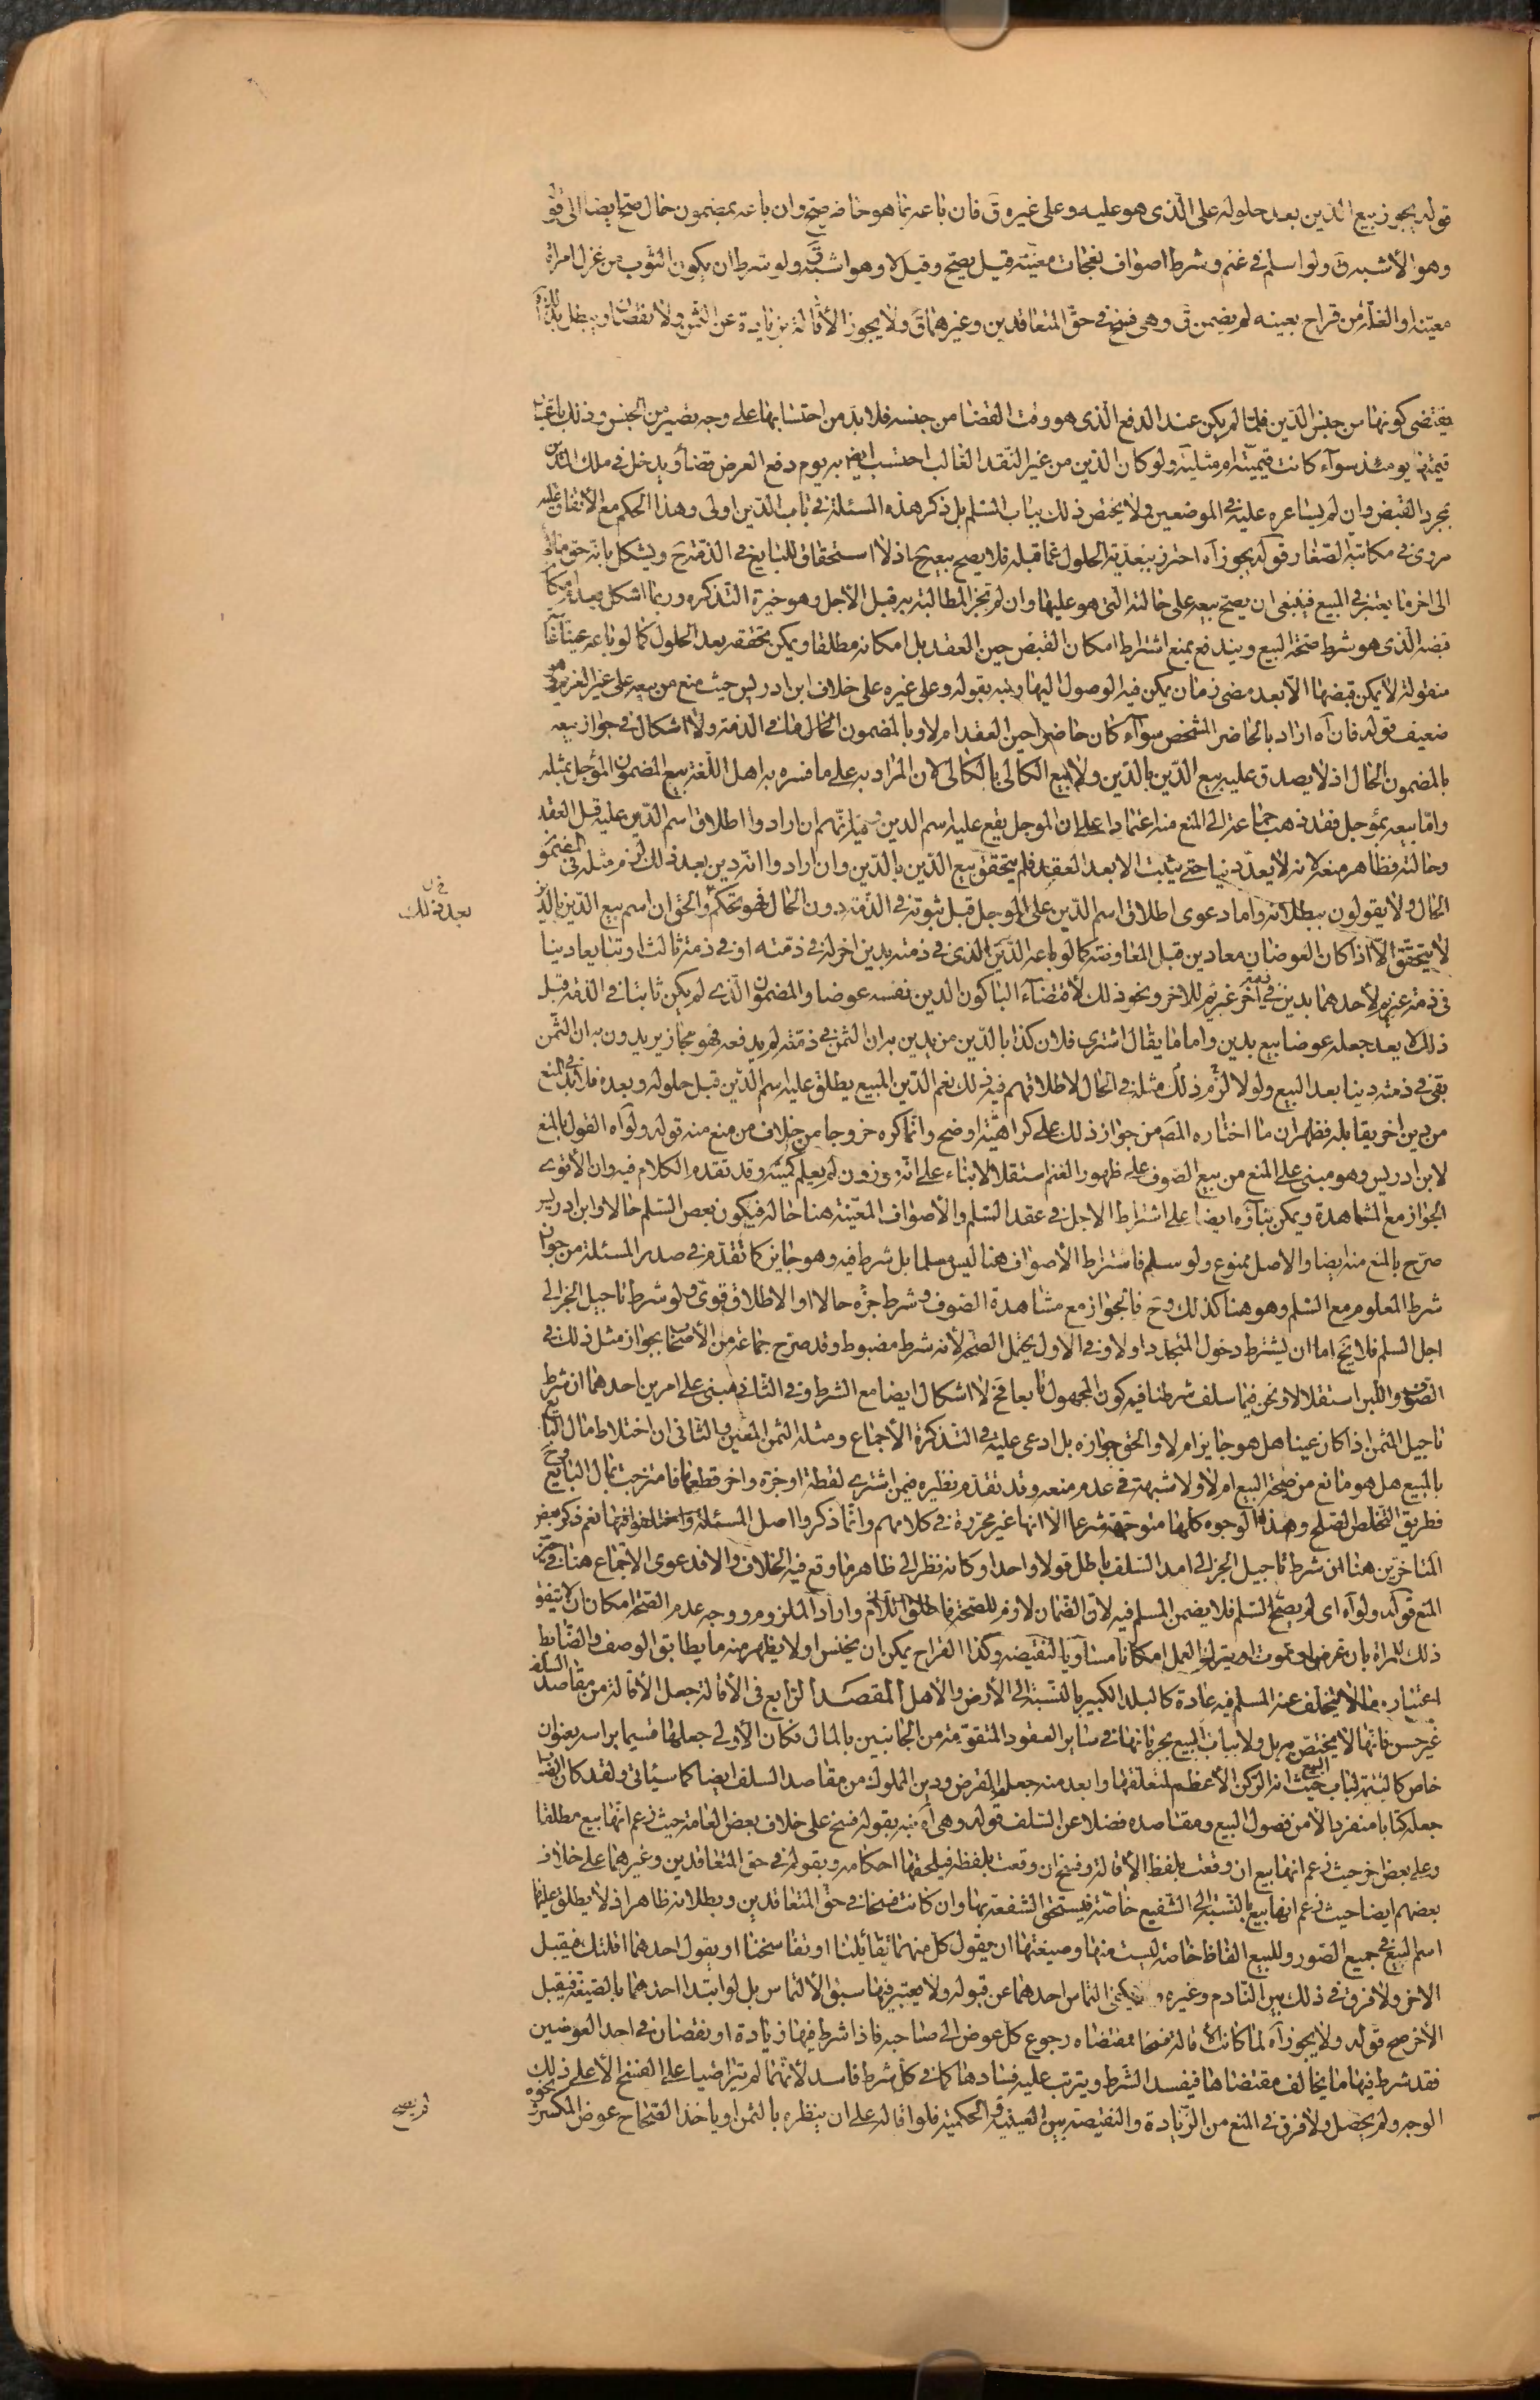 قوله يجوز بيع الدين بعد حلوله على الذى هو عليه وعلى غيره ق فان باعه بما هو حاضر صح وان باعه بمضمون حال صح ايضا الى
وهو الأشبه ق ولو اسلم فى غنم وشرط اصواف نعجات معينة قيل يصح وقيل لا وهو اشبه ق ولو شرط ان يكون الثوب من غزل امرأة
معينة او الغلة من قراح بعينه لم يضمن ق وهى فسخ فى حق المتعاقدين وغيرهما ق ولا يجوز الأقالة بزيادة عن الثمن ولا نقصان ويبطل
يقتضى كونها من جنس الدين فلما لم يكن عند الدفع الذى هو وقت القضا من جنسه فلا بد من احتسابها على وجه يصير من الجنس وذلك باعتبار
قيمتها يومئذ سوآء كانت قيمية ام مثلية ولو كان الدين من غير النقد الغالب احتسب ايض به يوم دفع العرض قضاء ويدخل فى ملك المدين
بمجرد القبض وان لم يساعره عليه فى الموضعين ولا يختص ذلك بباب السلم بل ذكر هذه المسئلة فى باب الدين اولى وهذا الحكم مع الأتفاق عليه
مروى فى مكاتبة الصفار قوله يجوز آه احترز ببعدية الحلول عما قبله فلا يصح بيعه ح اذ لا استحقاق للبايع فى الذمة ح ويشكل بانه حق مالى
الى اخر ما يعتبر فى المبيع فينبغى ان يصح بيعه على حالته التى هو عليها وان لم تجز المطالبة به قبل الأجل وهو خيرة التذكره وربما اشكل بعدم امكان
قبضه الذى هو شرط صحة البيع ويندفع بمنع اشتراط امكان القبض حين العقد بل امكانه مطلقا ويمكن تحققه بعد الحلول كما لو باعه عينا غائبة
منقولة لا يمكن قبضها الا بعد مضى زمان يمكن فيه الوصول اليها ونبه بقوله وعلى غيره على خلاف ابن ادريس حيث منع من بيعه على غير الغريم وهو
ضعيف قوله فان آه اراد بالحاضر المشخص سوآء كان حاضرا حين العقد ام لا وبالمضمون الحال ما فى الذمة ولا اشكال فى جواز بيعه
بالمضمون الحال اذ لا يصدق عليه بيع الدين بالدين ولا بيع الكالى بالكالى لان المراد به على ما فسره به اهل اللغة بيع المضمون المؤجل بمثله
واما بيعه بمؤجل فقد ذهب جماعة الى المنع منه اعتمادا على ان المؤجل يقع عليه اسم الدين وفيه انهم ان ارادوا اطلاق اسم الدين عليه قبل العقد
وحالته فظاهر منعه لانه لا يعد دينا حتى يثبت الا بعد العقد فلم يتحقق بيع الدين بالدين وان ارادوا انه دين بعد ذلك لزم مثله فى المضمون
الحال ولا يقولون ببطلانه واما دعوى اطلاق اسم الدين على المؤجل قبل ثبوته فى الذمة دون الحال فهو تحكم والحق ان اسم بيع الدين بالدين
بعد ذلك
لا يتحقق الا اذا كان العوضان معا دين قبل المعاوضة كما لو باعه الدين الذى فى ذمته بدين اخر له فى ذمته او فى ذمة ثالث او تبايعا دينا
فى ذمة غريم لأحدهما بدين فى ذمة اخر غريم للاخر ونحو ذلك لأقتضآء الباء كون الدين نفسه عوضا والمضمون الذى لم يكن ثابتا فى الذمة قبل
ذلك لا يعد جعله عوضا بيع بدين واما ما يقال اشترى فلان كذا بالدين مريدين به ان الثمن فى ذمته لم يدفعه فهو مجاز يريدون به ان الثمن
بقى فى ذمته دينا بعد البيع ولو لا لزم ذلك مثله فى الحال لاطلاقهم فيه ذلك نعم الدين المبيع يطلق عليه اسم الدين قبل حلوله وبعده فلا بد فى المنع
من دين اخر يقابله فظهر ان ما اختاره المص من جواز ذلك على كراهية اوضح وانما كره خروجا من خلاف من منع منه قوله ولو آه القول بالمنع
لابن ادريس وهو مبنى على المنع من بيع الصوف على ظهور الغنم استقلالا بناء على انه موزون لم يعلم كميته وقد تقدم الكلام فيه وان الأقوى
الجواز مع المشاهدة ويمكن بناؤه ايضا على اشتراط الاجل فى عقد السلم والأصواف المعينة هنا حالة فيكون بعض السلم حالا وابن ادريس
صرح بالمنع منه ايضا والاصل ممنوع ولو سلم فاشتراط الأصواف هنا ليس سلما بل شرط فيه وهو جايز كما تقدم فى صدر المسئلة من جواز
شرط المعلوم مع السلم وهو هنا كذلك وح فالجواز مع مشاهدة الصوف وشرط جزه حالا او الاطلاق قوى ولو شرط تأجيل الجز الى
اجل السلم فلا يخ اما ان يشترط دخول المتجدد اولا وفى الاول يحتمل الصحة لأنه شرط مضبوط وقد صرح جماعة من الأصحاب بجواز مثل ذلك فى
الصوف واللبن استقلالا ونحن فيما سلف شرطنا فيه كون المجهول تابعا فح لا اشكال ايضا مع الشرط وفى الثانى مبنى على امرين احدهما ان شرط
تاجيل الثمن اذا كان عينا هل هو جايز ام لا والحق جوازه بل ادعى عليه فى التذكرة الأجماع ومثله الثمن المعين والثانى ان اختلاط مال البايع
بالمبيع هل هو مانع من صحة البيع ام لا ولا شبهة فى عدم منعه وقد تقدم نظيره فيمن اشترى لقطة او جزة واخر قطعها فامتزجت بمال البايع وح
فطريق التخلص الصلح وهذه الوجوه كلها متوجهة شرعا الا انها غير محررة فى كلامهم وانما ذكروا اصل المسئلة واختلفوا فيها نعم ذكر بعض
المتاخرين هنا ان شرط تاجيل الجز الى امد السلف باطل قولا واحدا وكانه نظر الى ظاهر ما وقع فيه الخلاف والا فدعوى الأجماع هنا فى حيز
المنع قوله ولو آه اى لم يصح السلم فلا يضمن المسلم فيه لان الضمان لازم للصحة فاطلق اللازم واراد الملزوم ووجه عدم الصحة امكان ان لا يتفق
ذلك للمراة بان تمرض او تموت او يترك العمل امكانا مساويا لنقيضه وكذا القراح يمكن ان يخنس او لا يظهر منه ما يطابق الوصف والضابط
اعتبار ما لا يتخلف عنه المسلم فيه عادة كالبلد الكبير بالنسبة الى الأرض والأهل المقصد الرابع فى الأقالة جعل الأقالة من مقاصد السلف
غير حسن فانها لا يختص به بل ولا بباب البيع بجريانها فى ساير العقود المتقومة من الجانبين بالمال فكان الأولى جعلها قسيما براسه بعنوان
خاص كالتتمة لباب البيع حيث انه الركن الأعظم لمتعلقها وابعد منه جعله القرض ودين المملوك من مقاصد السلف ايضا كما سيأتى ولقد كان
جعله كتابا منفردا لأمن فصول البيع ومقاصده فضلا عن السلف قوله وهى آه نبه بقوله فسخ على خلاف بعض العامة حيث زعم انها بيع مطلقا
وعلى بعض اخر حيث زعم انها بيع ان وقعت بلفظ الأقالة وفسخ ان وقعت بلفظه فيلحقها احكامه وبقوله فى حق المتعاقدين وغيرهما على خلاف
بعضهم ايضا حيث زعم انها بيع بالنسبة الى الشفيع خاصة فيستحق الشفعة بها وان كانت فسخا فى حق المتعاقدين وبطلانه ظاهر اذ لا يطلق عليها
اسم البيع فى جميع الصور وللبيع الفاظ خاصة ليست منها وصيغتها ان يقول كل منهما تقائلنا او تفاسخنا او يقول احدهما اقلتك فيقبل
الاخر ولا فرق فى ذلك بين النادم وغيره و يكفى التماس احدهما عن قبوله ولا يعتبر فيها سبق الألتماس بل لو ابتدا احدهما بالصيغة فيقبل
الأخر صح قوله ولا يجوز آه لما كانت الأقالة فسخا مقتضاه رجوع كل عوض الى صاحبه فاذا شرط فيها زيادة او نقصان فى احد العوضين
فقد شرط فيها ما يخالف مقتضاها فيفسد الشرط ويترتب عليه فسادها كما فى كل شرط فاسد لأنهما لم يتراضيا على الفسخ الأعلى ذلك
الوجه ولم يحصل ولا فرق فى المنع من الزيادة والنقيصة بين العينية والحكمية فلو اقاله على ان ينظره بالثمن او ياخذ الصحاح عوض المكسرة ونحوه
لم يصح